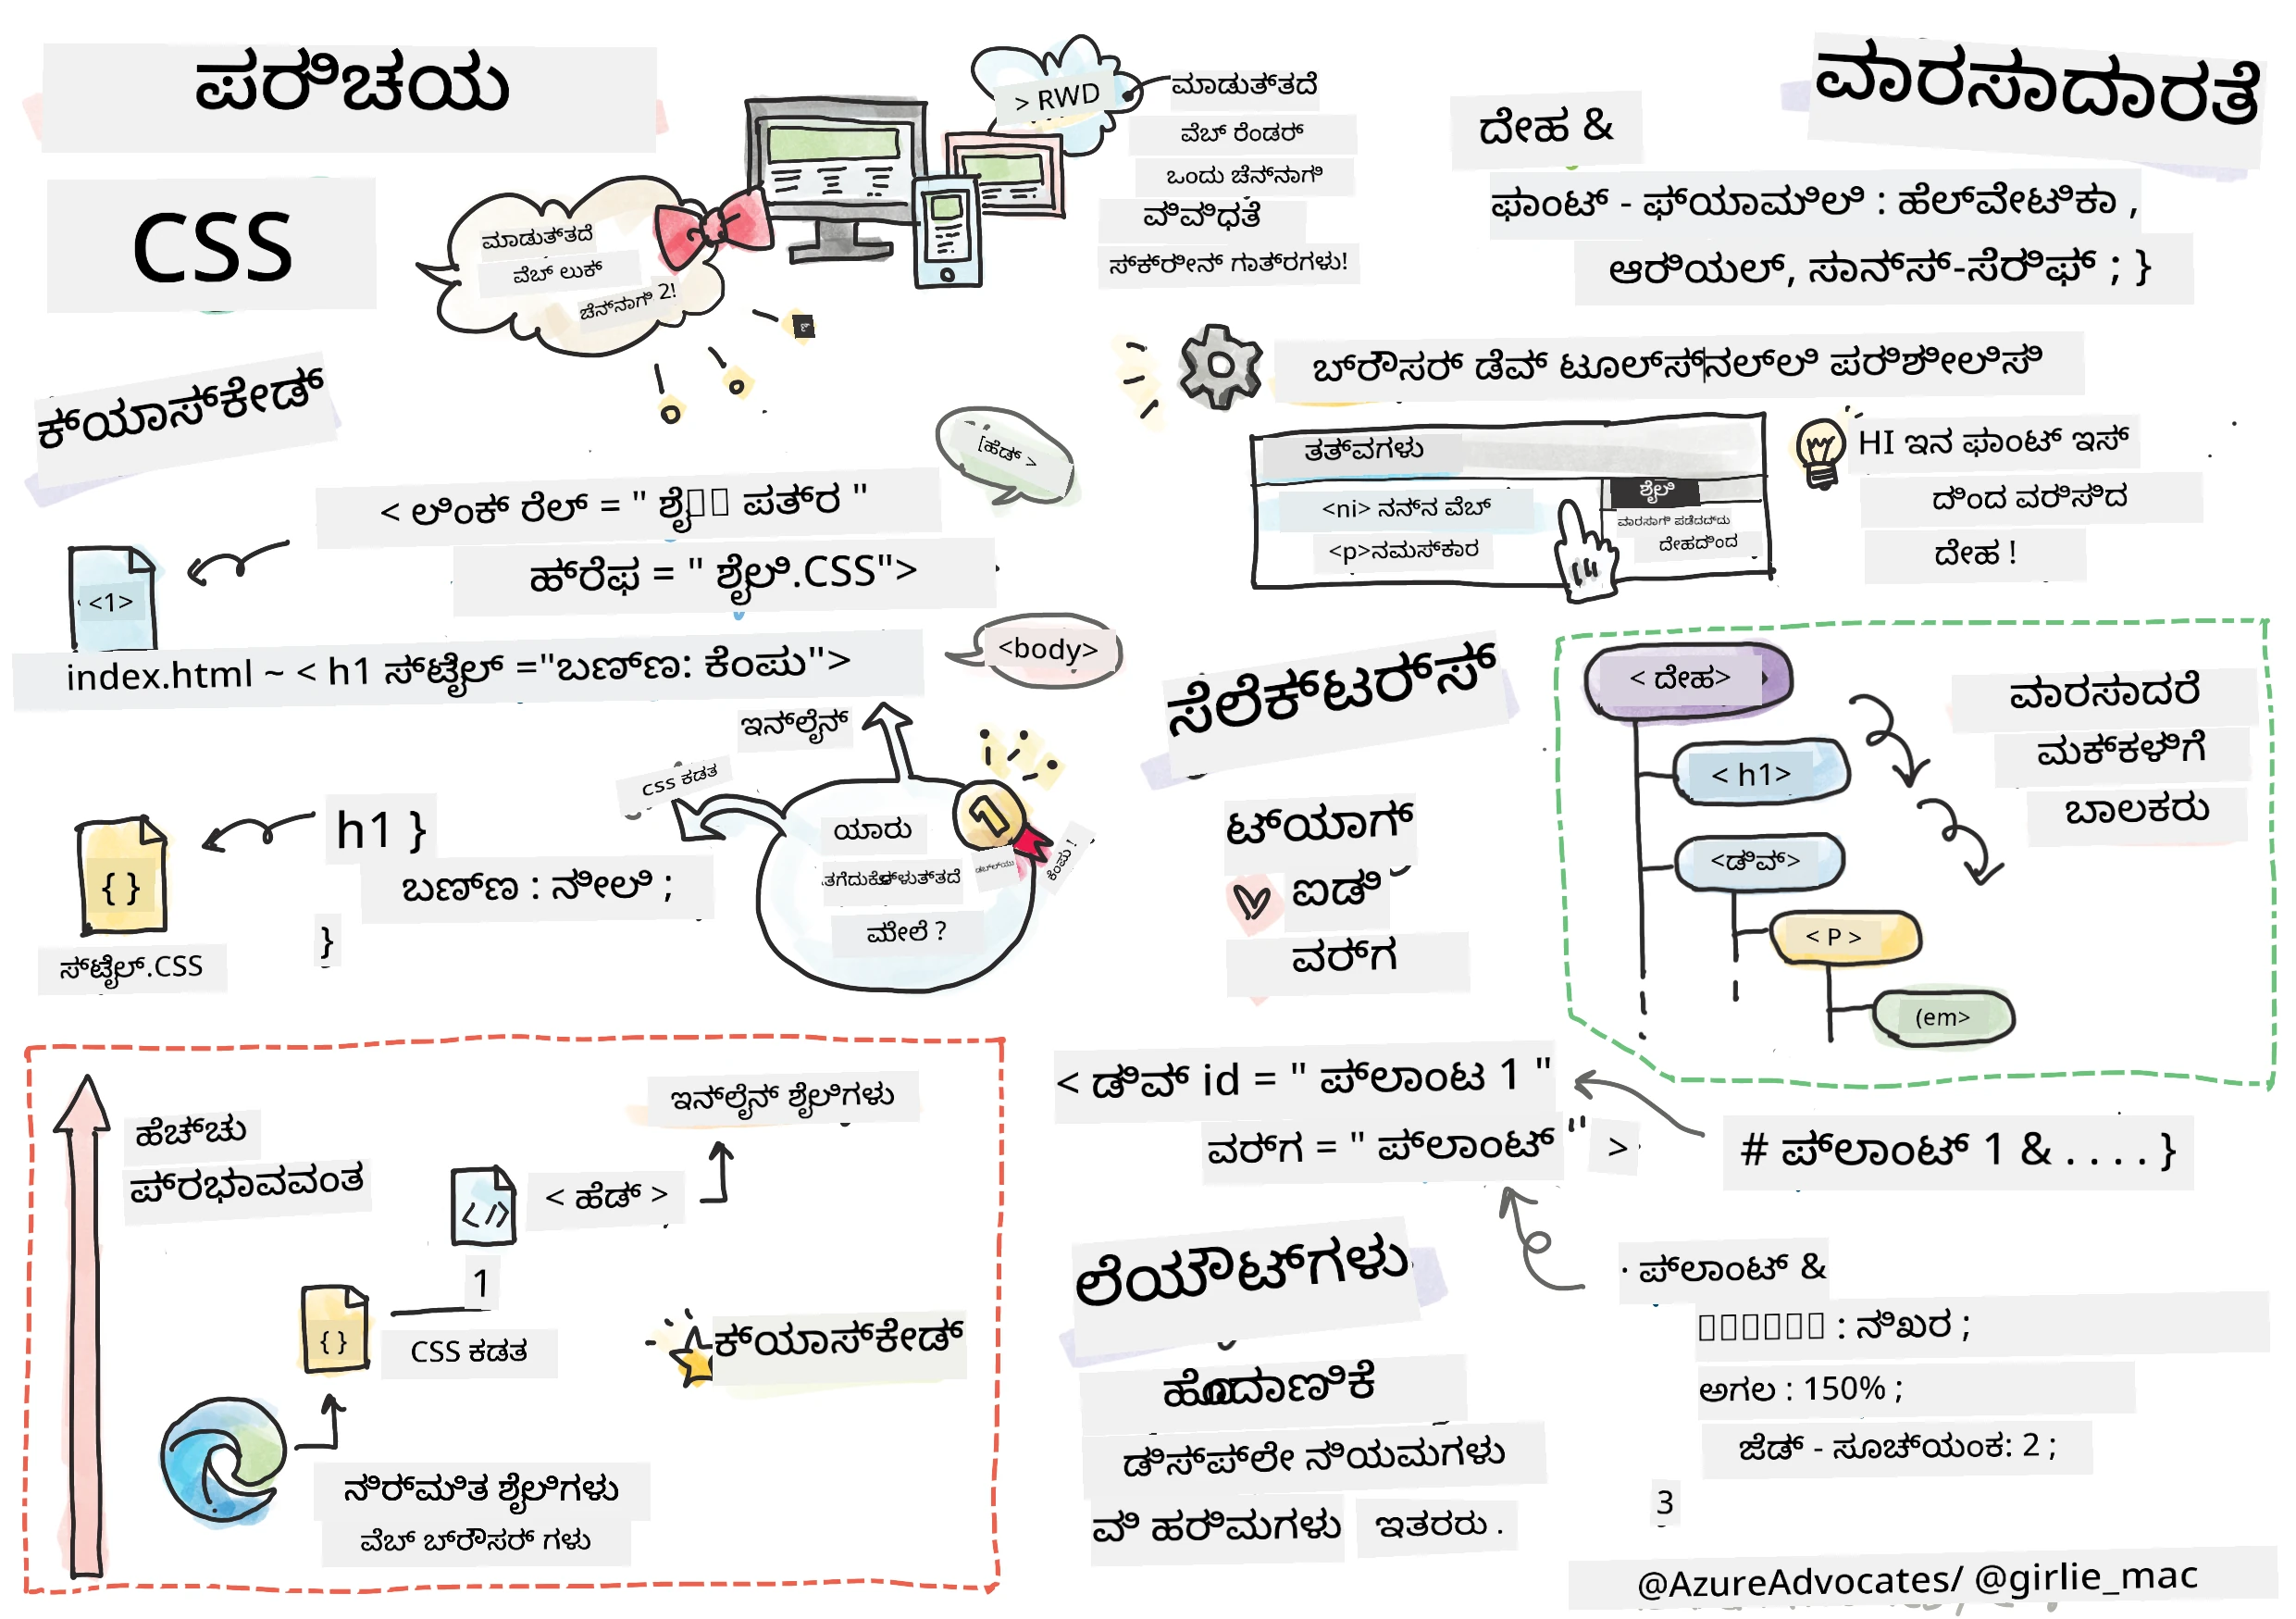 ಪರಿಚಯ
CSS
ಮಾಡುತ್ತದೆ
ವೆಬ್ ಲುಕ್
ಚೆನ್ನಾಗಿ 2!
> RWD
ಮಾಡುತ್ತದೆ
ವೆಬ್ ರೆಂಡರ್
ಒಂದು ಚೆನ್ನಾಗಿ
ವಿವಿಧತೆ
ಸ್ಕ್ರೀನ್ ಗಾತ್ರಗಳು!
ಕ್ಯಾಸ್ಕೇಡ್
[ಹೆಡ್ >
< ಲಿಂಕ್ ರೆಲ್ = " ಶೈ ಪತ್ರ "
ಹ್ರೆಫ = " ಶೈಲಿ.CSS">
<1>
index.html ~ < h1 ಸ್ಟೈಲ್ ="ಬಣ್ಣ: ಕೆಂಪು">
<body>
ಇನ್‌ಲೈನ್
CSS ಕಡತ
h1 }
ಬಣ್ಣ : ನೀಲಿ ;
}
{ }
ಸ್ಟೈಲ್.CSS
1
ಯಾರು
ತೆಗೆದುಕೊಳ್ಳುತ್ತದೆ
ಕೆಂಪು !
ಮೇಲೆ ?
ಹೆಚ್ಚು
ಪ್ರಭಾವವಂತ
ಇನ್‌ಲೈನ್ ಶೈಲಿಗಳು
</>
< ಹೆಡ್ >
1
{ }
CSS ಕಡತ
ಕ್ಯಾಸ್ಕೇಡ್
ನಿರ್ಮಿತ ಶೈಲಿಗಳು
ವೆಬ್ ಬ್ರೌಸರ್ ಗಳು
ವಾರಸಾದಾರತೆ
ದೇಹ &
ಫಾಂಟ್ - ಫ್ಯಾಮಿಲಿ : ಹೆಲ್ವೇಟಿಕಾ ,
ಆರಿಯಲ್, ಸಾನ್ಸ್-ಸೆರಿಫ್ ; }
ಬ್ರೌಸರ್ ಡೆವ್ ಟೂಲ್ಸ್‌ನಲ್ಲಿ ಪರಿಶೀಲಿಸಿ
ತತ್ವಗಳು
<ni> ನನ್ನ ವೆಬ್
<p>ನಮಸ್ಕಾರ
ಶೈಲಿ
ವಾರಸಾಗಿ ಪಡೆದದ್ದು
ದೇಹದಿಂದ
HI ಇನ ಫಾಂಟ್ ಇಸ್
ದಿಂದ ವರಿಸಿದ
ದೇಹ !
ಸೆಲೆಕ್ಟರ್ಸ್
ಟ್ಯಾಗ್
ಐಡಿ
ವರ್ಗ
< ದೇಹ>
< h1>
<ಡಿವ್>
< P >
(em>
ವಾರಸಾದರೆ
ಮಕ್ಕಳಿಗೆ
ಬಾಲಕರು
< ಡಿವ್ id = " ಪ್ಲಾಂಟ 1 "
ವರ್ಗ = " ಪ್ಲಾಂಟ್ " >
# ಪ್ಲಾಂಟ್ 1 & . . . . }
· ಪ್ಲಾಂಟ್ &
: ನಿಖರ ;
ಅಗಲ : 150% ;
ಜೆಡ್ - ಸೂಚ್ಯಂಕ: 2 ;
3
ಲೆಯೌಟ್‌ಗಳು
ಹೊಂದಾಣಿಕೆ
ಡಿಸ್ಪ್ಲೇ ನಿಯಮಗಳು
ವಿ ಹರಿಮಗಳು ಇತರರು .
@AzureAdvocates/ @girlie_mac